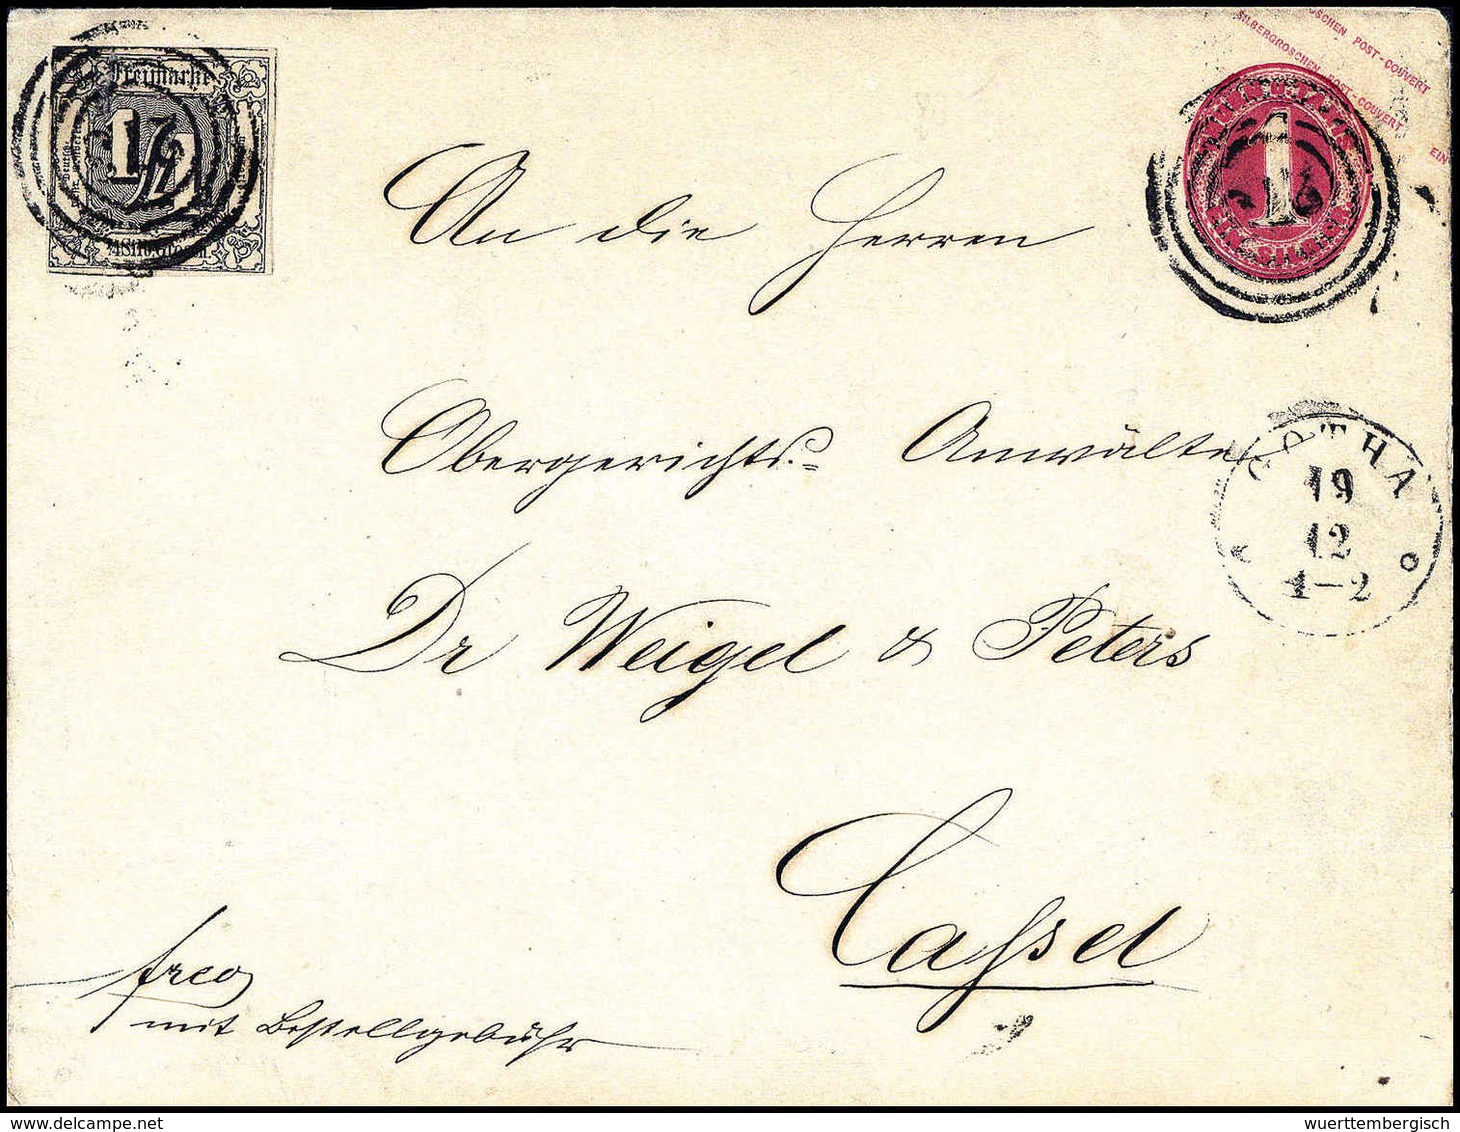 SILBERGROSCHEN POST-COUVERT
SILBERGROSCHEN POST-COUVERT
EIN
Freimarke
1/4
1/4 Silb. Grosch.
1
EIN SILBERGR.
An die Herren
Obergerichts= Anwälte
GOTHA
19
12
1-2
Dr Weigel & Peters
Cassel
frco
mit Bestellgebühr
© wuerttembergisch